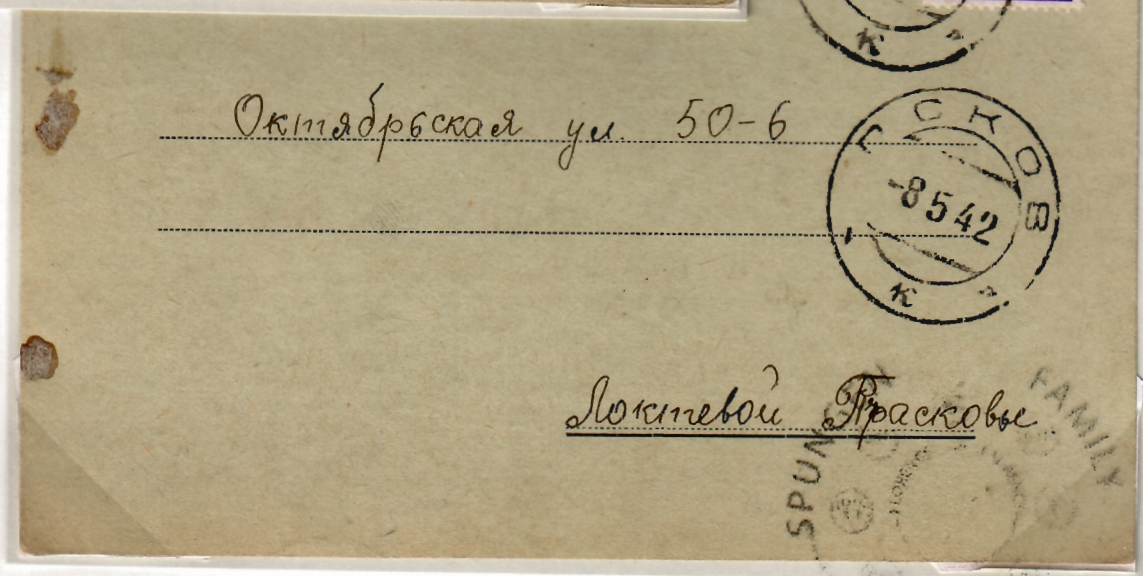 Октябрьская ул. 50-6
ПСКОВ
-8 5 42
к
Локтевой Прасковье
SPUN
FAMILY